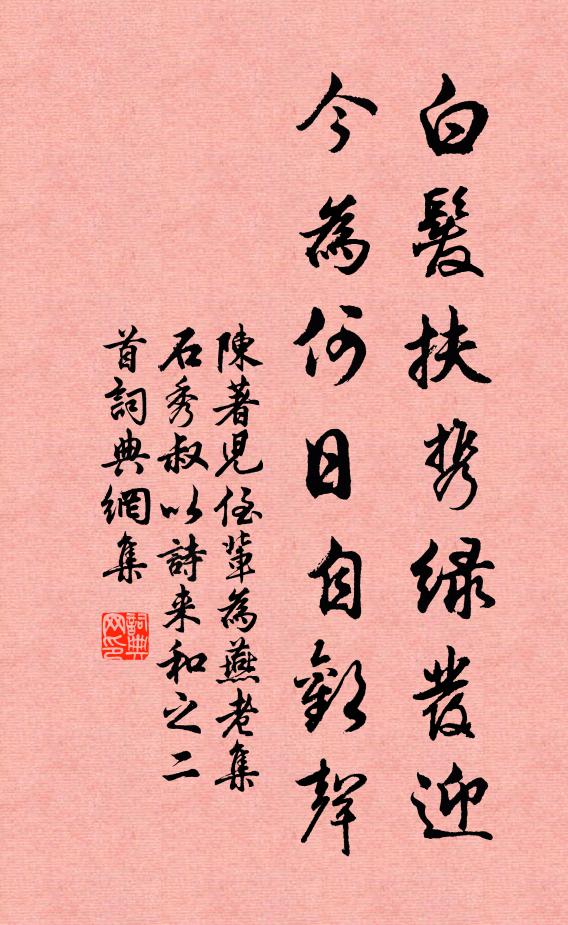 白髮扶携綠發迎
今為何日自歡聲
陳著兒侄輩為燕老集
石秀叔以詩来和之二
首詞典網集
詞典网印